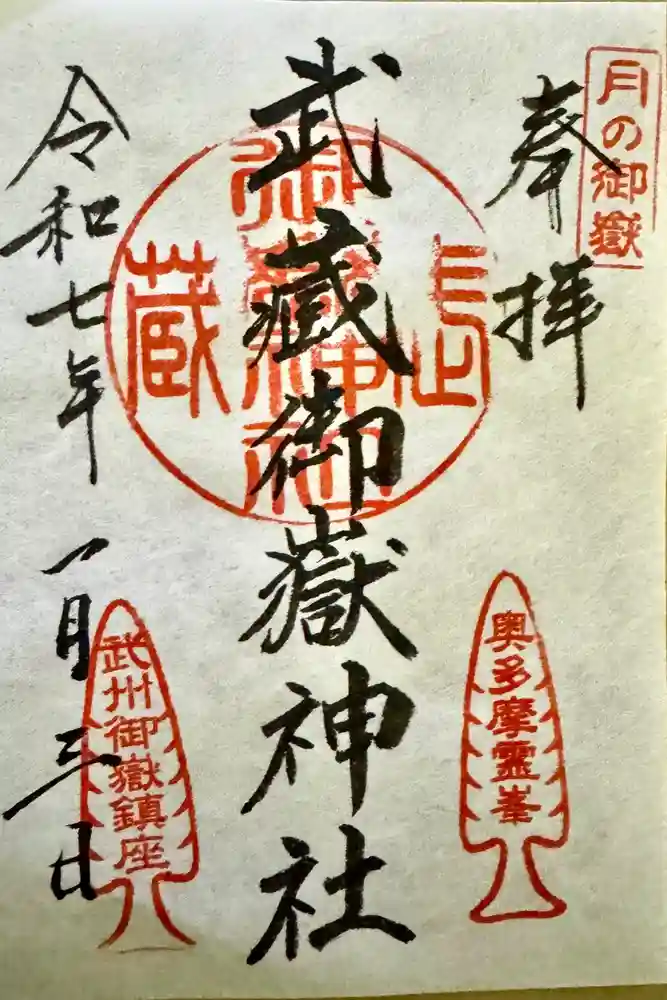 月の御嶽
奉拝
奥多摩霊峯
武蔵御嶽神社
令和七年一月三日
武州御嶽鎮座